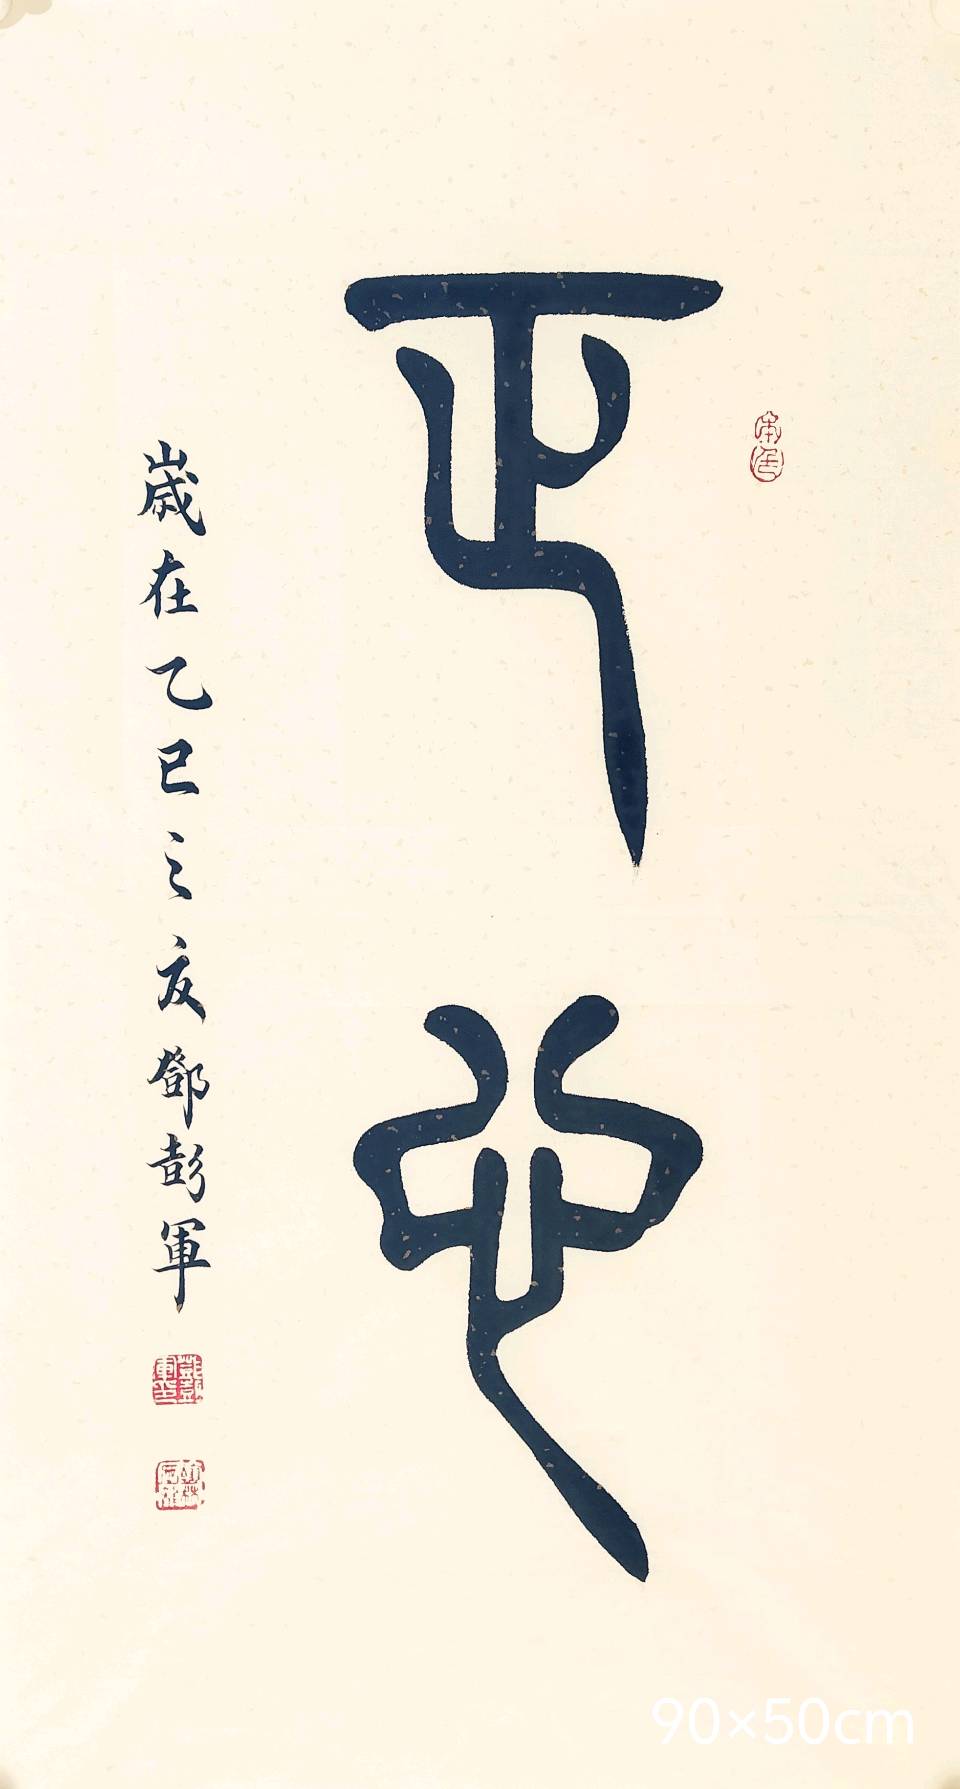 正心
歲在乙巳之夏鄧彭軍
90×50cm